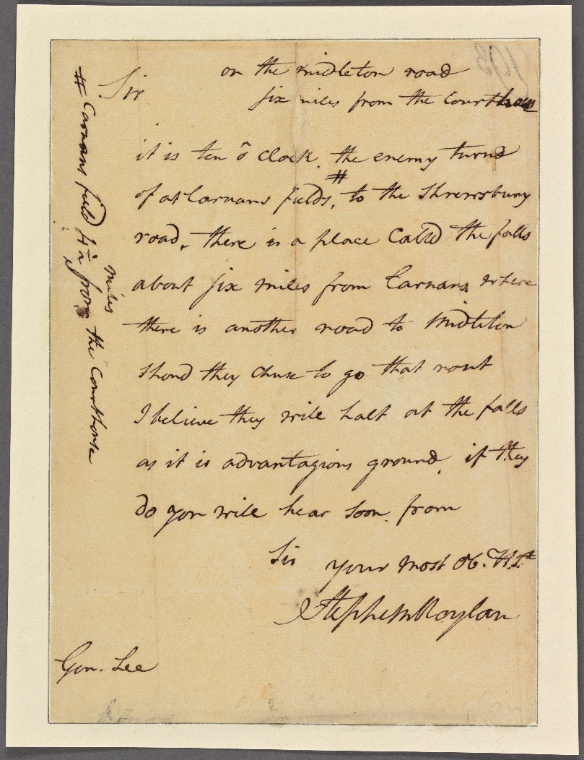 on the midleton road
Sir
six miles from the Courthous
it is ten o Clock. the enemy turnd
of at Carnans fields,# to the Shrewsbury
road, there is a place Calld the falls
about six miles from Carnans, where
there is another road to Midleton
Shoud they chuse to go that rout
I believe they will halt at the falls
as it is advantagious ground, if they
do you will hear soon from
Sir your most Ob. H St
Stephen Moylan
Gen. Lee
# Carnans field 4½ miles from the Courthouse